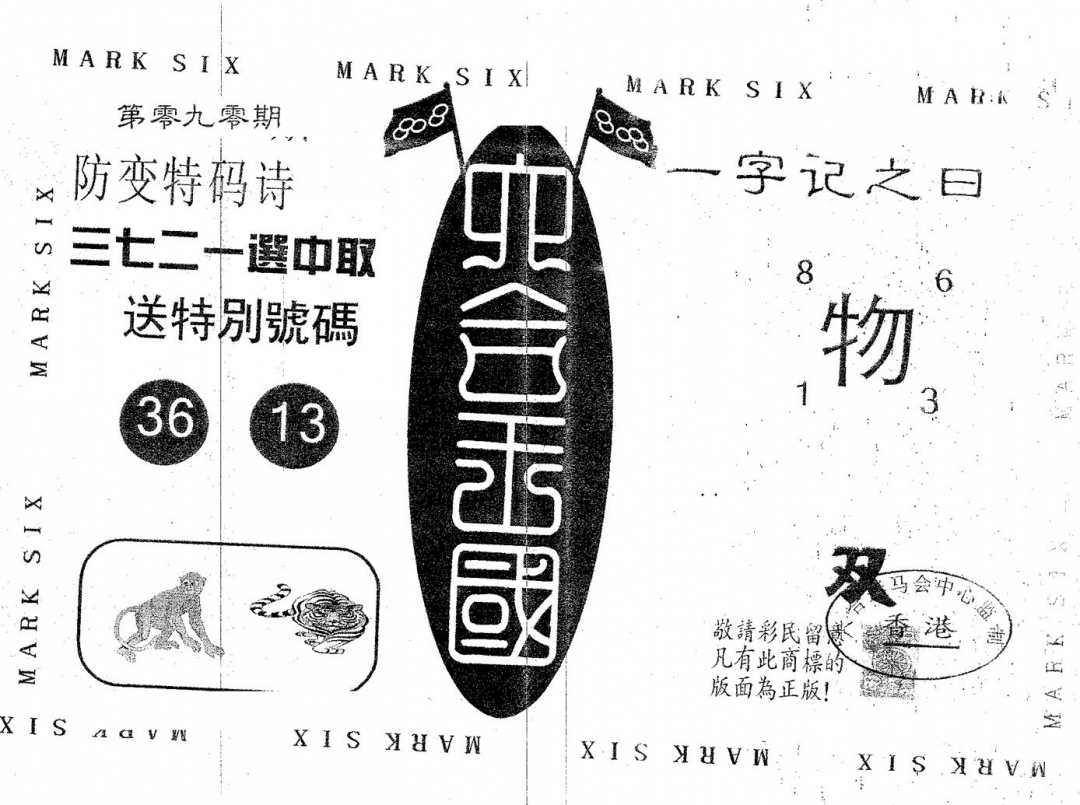 MARK SIX
MARK SIX
MARK SIX
MARK S
第零九零期
防变特码诗
三七二一選中取
送特別號碼
36 13
六合王國
一字记之曰
8 6
物
1 3
双
马会中心监制
香港
敬請彩民留意
凡有此商標的
版面為正版!
MARK SIX
MARK SIX
MARK SIX
MARK SIX
MARK SIX
MARK SIX
MARK SIX